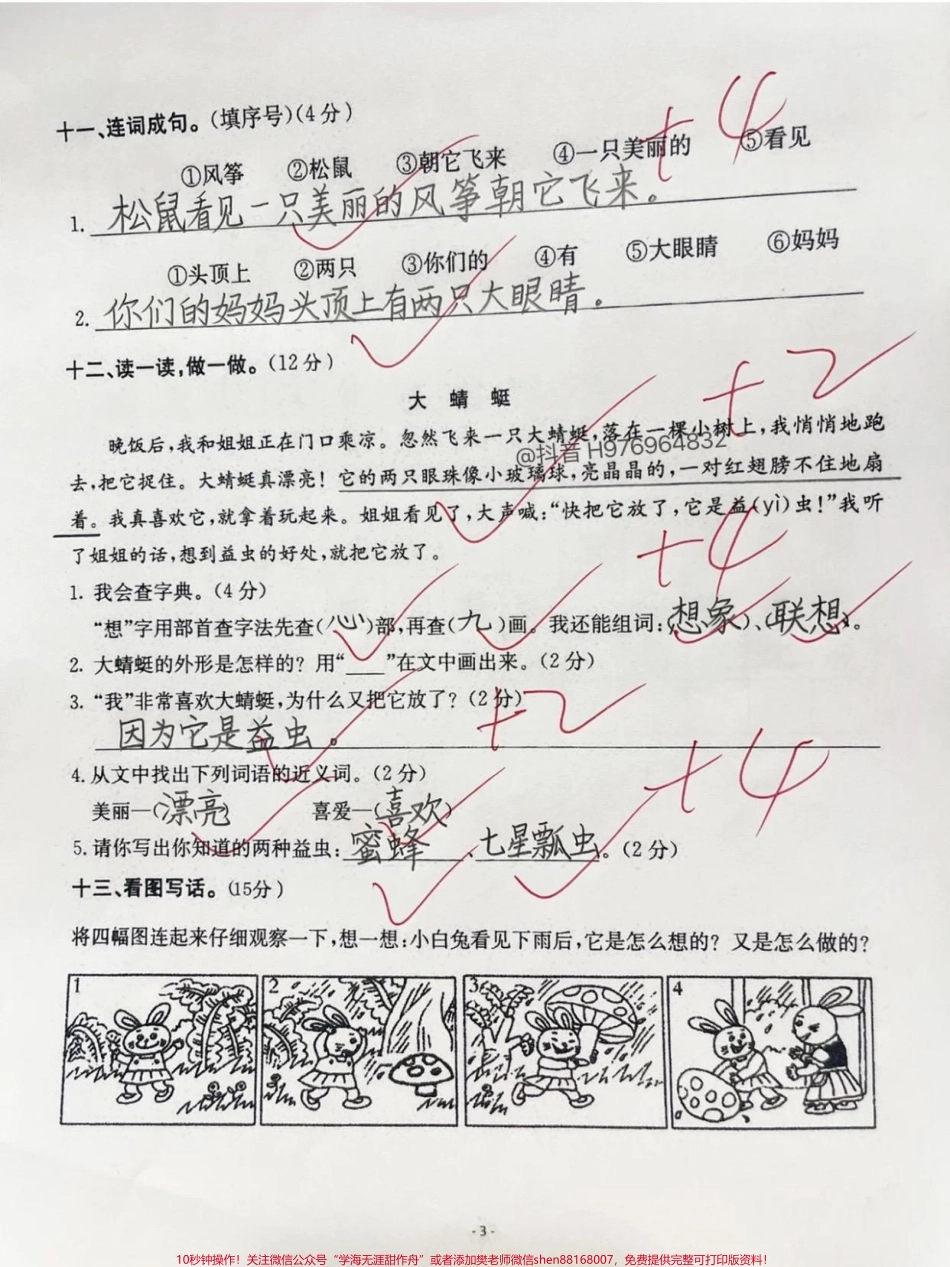 十一、连词成句。(填序号)(4分)
+4
①风筝 ②松鼠 ③朝它飞来 ④一只美丽的 ⑤看见
1. 松鼠看见一只美丽的风筝朝它飞来。
①头顶上 ②两只 ③你们的 ④有 ⑤大眼睛 ⑥妈妈
2. 你们的妈妈头顶上有两只大眼睛。
十二、读一读,做一做。(12分)
+2
大 蜻 蜓
晚饭后,我和姐姐正在门口乘凉。忽然飞来一只大蜻蜓,落在一棵小树上,我悄悄地跑
@抖音 H976964832
去,把它捉住。大蜻蜓真漂亮!它的两只眼珠像小玻璃球,亮晶晶的,一对红翅膀不住地扇
着。我真喜欢它,就拿着玩起来。姐姐看见了,大声喊:“快把它放了,它是益(yì)虫!”我听
了姐姐的话,想到益虫的好处,就把它放了。
+4
1. 我会查字典。(4分)
“想”字用部首查字法先查(心)部,再查(九)画。我还能组词:(想象)、(联想)。
2. 大蜻蜓的外形是怎样的?用“___”在文中画出来。(2分)
3. “我”非常喜欢大蜻蜓,为什么又把它放了?(2分)
+2
因为它是益虫。
4. 从文中找出下列词语的近义词。(2分)
+4
美丽—(漂亮) 喜爱—(喜欢)
5. 请你写出你知道的两种益虫:蜜蜂、七星瓢虫。(2分)
十三、看图写话。(15分)
将四幅图连起来仔细观察一下,想一想:小白兔看见下雨后,它是怎么想的?又是怎么做的?
1 2 3 4
- 3 -
10秒钟操作!关注微信公众号“学海无涯甜作舟”或者添加樊老师微信shen88168007,免费提供完整可打印版资料!